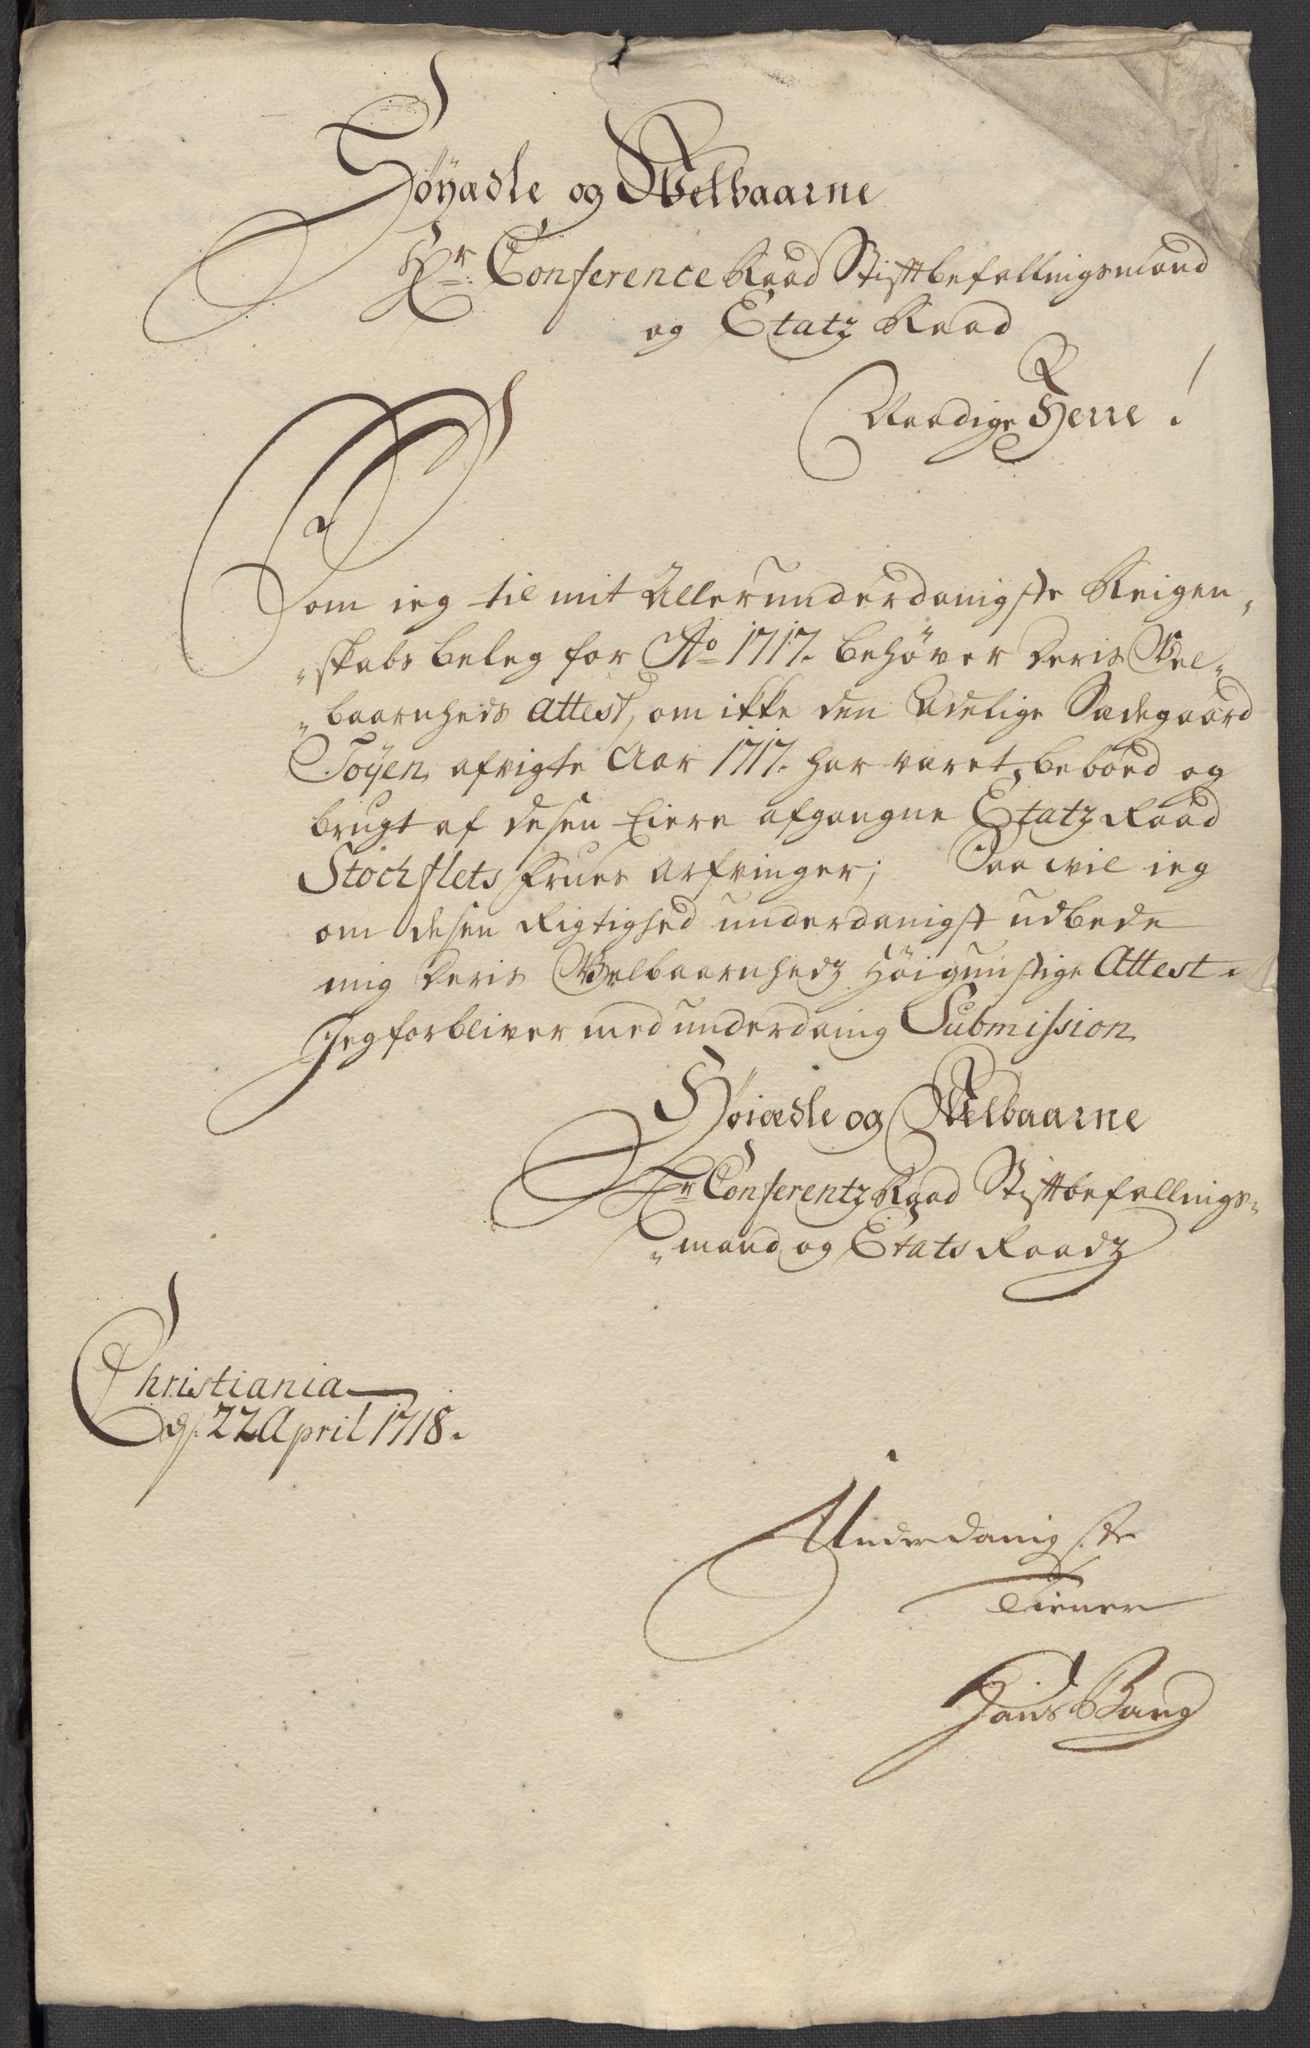 Höyædle og Welbaarne
Hr: Conference Raad Stifttbefallingsmand
og Etatz Raad
Naadige Herre!
Som ieg til mit Allerunderdanigste Reigen„
„skabs beleg for Ao 1717. behøver deris Wel„
„baarnheds Attest, om ikke den Adelige Sædegaard
Töyen, afvigte Aar 1717. har været beboed og
brugt af desen Eiere afgangne Etatz Raad
Stochflets Frues Arfvinger; Saa wil ieg
om desen Rigtighed underdanigst udbede
mig Deris Welbaarnhedz Höigunstige Attest.
Jeg forbliver med underdanig Submission
Höiædle og Welbaarne
Hr Conferentz Raad Stifttbefallings„
„mand og Etats Raadz
Christiania
d. 22 April 1718.
Underdanigste
Tiener
Hans Bang